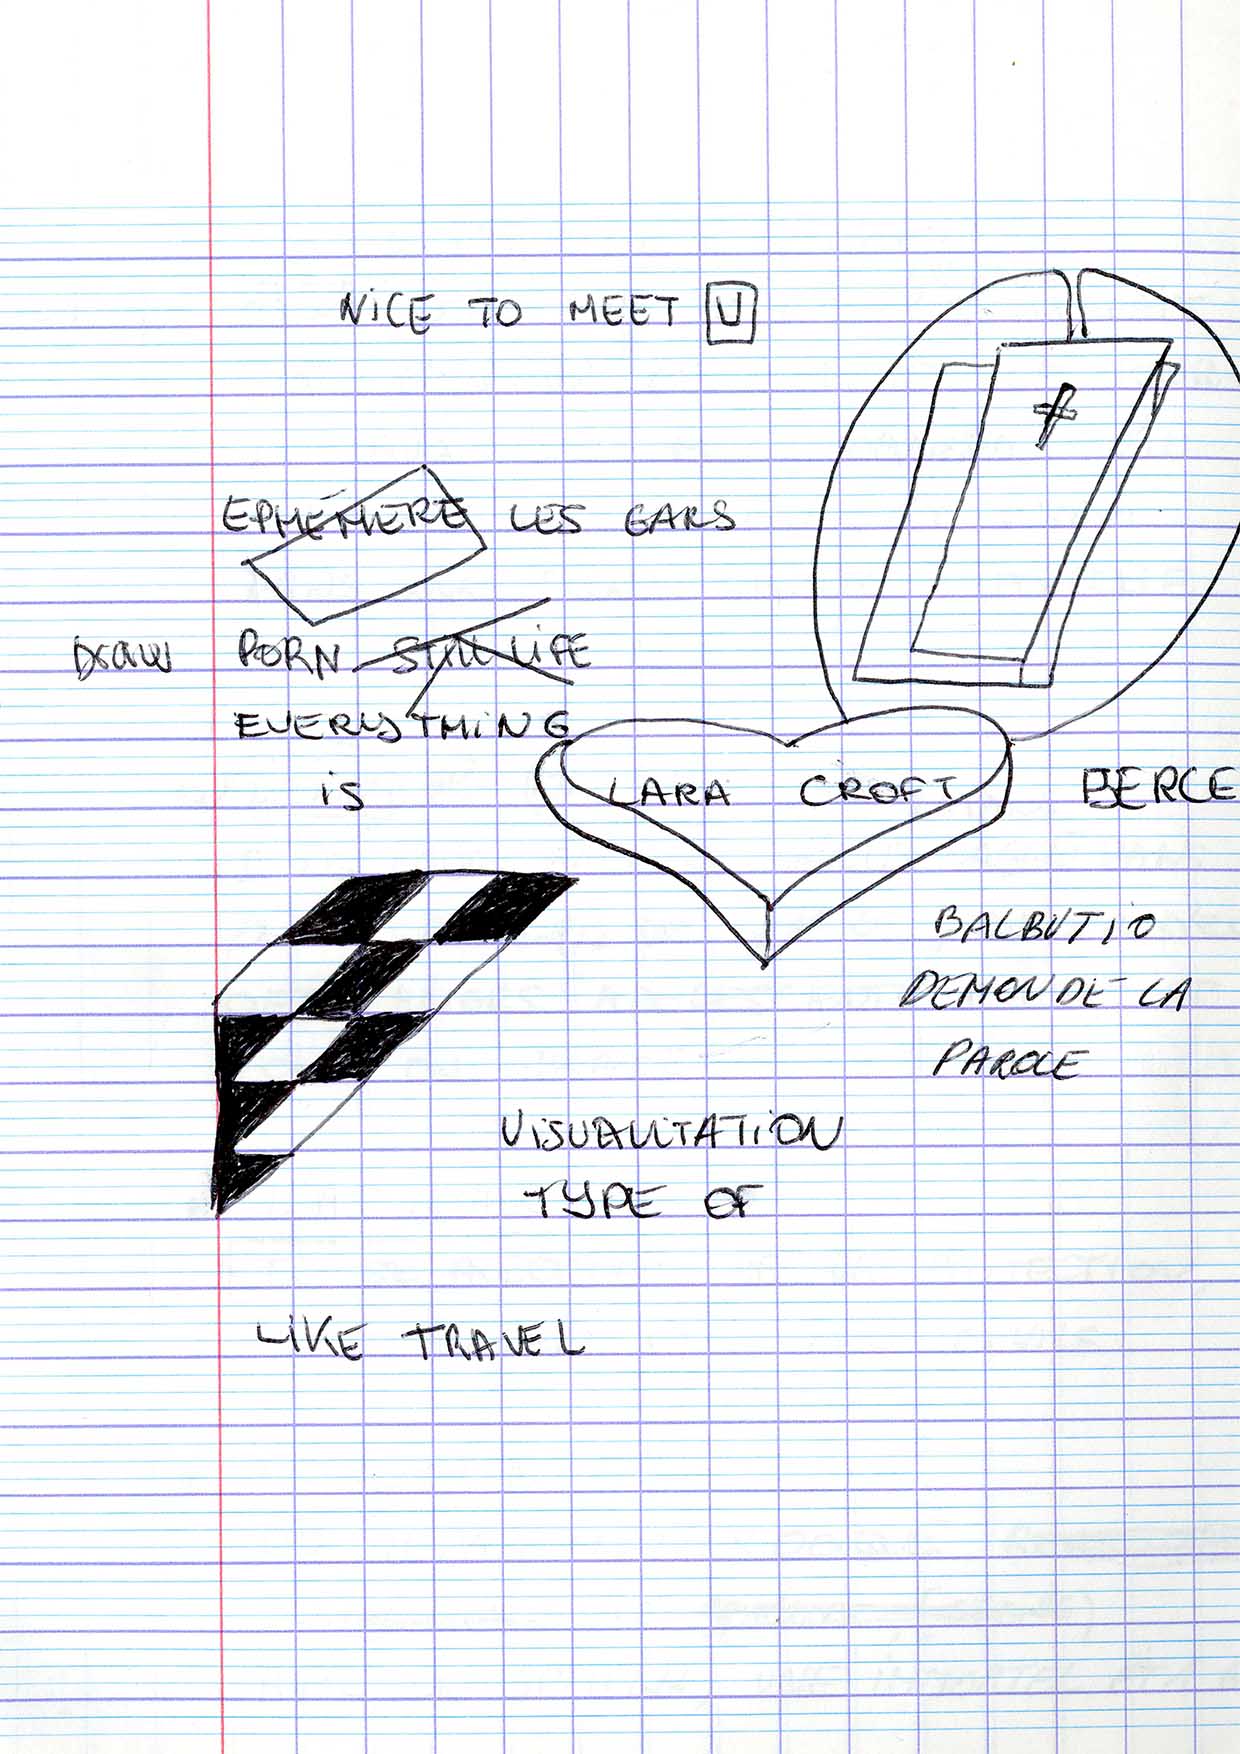 NICE TO MEET U
EPHÉMÈRE LES GARS
DRAW PORN STILL LIFE
EVERYTHING
is
LARA CROFT
BERCE
BALBUTIO
DEMONDE LA
PAROLE
VISUALITATION
TYPE OF
LIKE TRAVEL